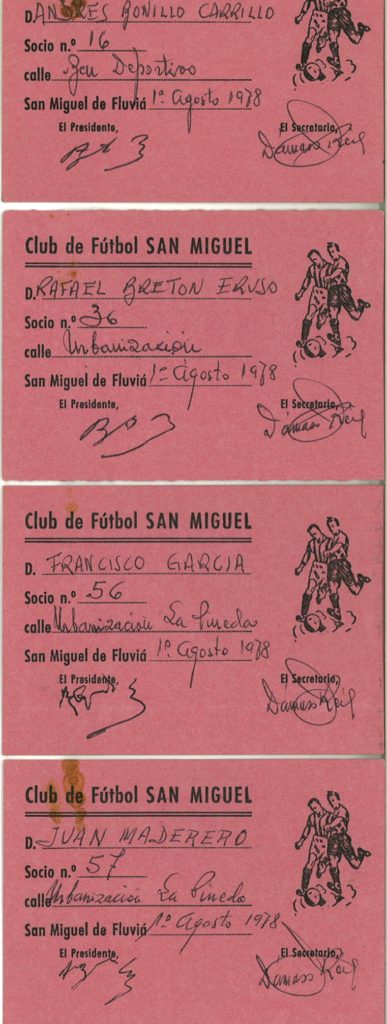 D. ANDRES BONILLO CARRILLO
Socio n.º 16
calle Beu Deportivo
San Miguel de Fluviá 1º Agosto 1978
El Presidente, El Secretario,
Dámaso Reig
Club de Fútbol SAN MIGUEL
D. RAFAEL BRETON ERUSO
Socio n.º 36
calle Urbanización
San Miguel de Fluviá 1º Agosto 1978
El Presidente, El Secretario,
Dámaso Reig
Club de Fútbol SAN MIGUEL
D. FRANCISCO GARCIA
Socio n.º 56
calle Urbanización La Pineda
San Miguel de Fluviá 1º Agosto 1978
El Presidente, El Secretario,
Dámaso Reig
Club de Fútbol SAN MIGUEL
D. JUAN MADERERO
Socio n.º 57
calle Urbanización La Pineda
San Miguel de Fluviá 1º Agosto 1978
El Presidente, El Secretario,
Dámaso Reig